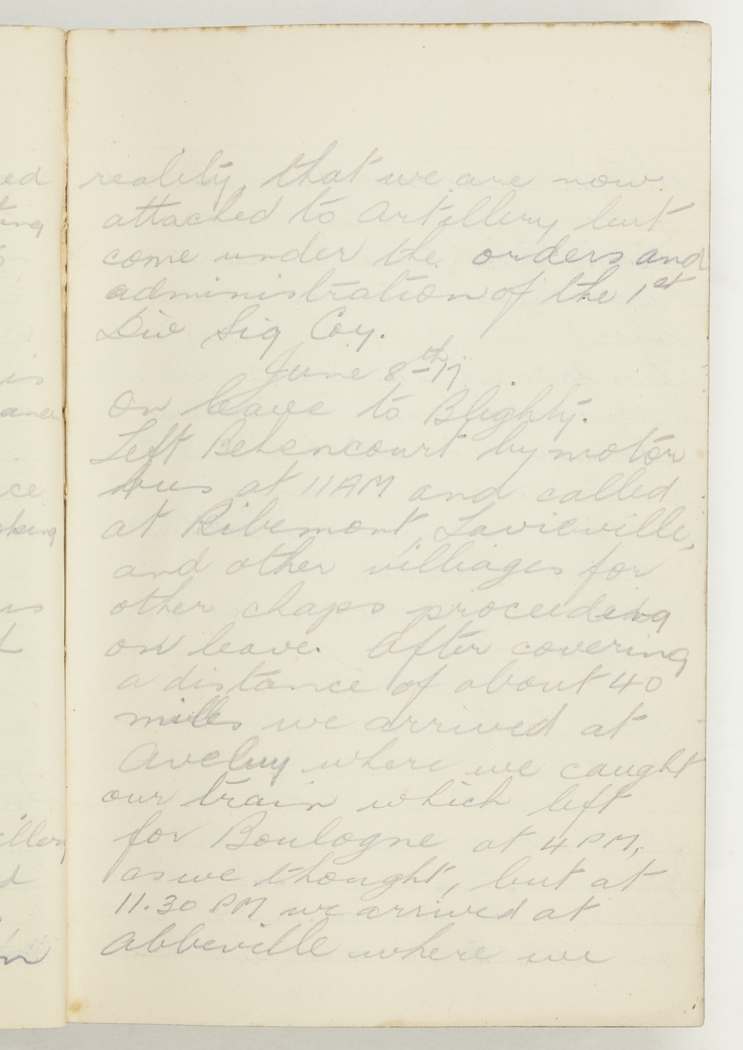 reality, that we are now
attached to Artillery but
come under the orders and
administration of the 1st
Div Sig Coy.
June 8th 17.
On leave to Blighty.
Left Behencourt by motor
bus at 11AM and called
at Ribemont, Lavieville,
and other villiages for
other chaps proceeding
on leave. After covering
a distance of about 40
miles we arrived at
Aveluy where we caught
our train which left
for Boulogne at 4 PM,
as we thought, but at
11.30 PM we arrived at
Abbeville where we